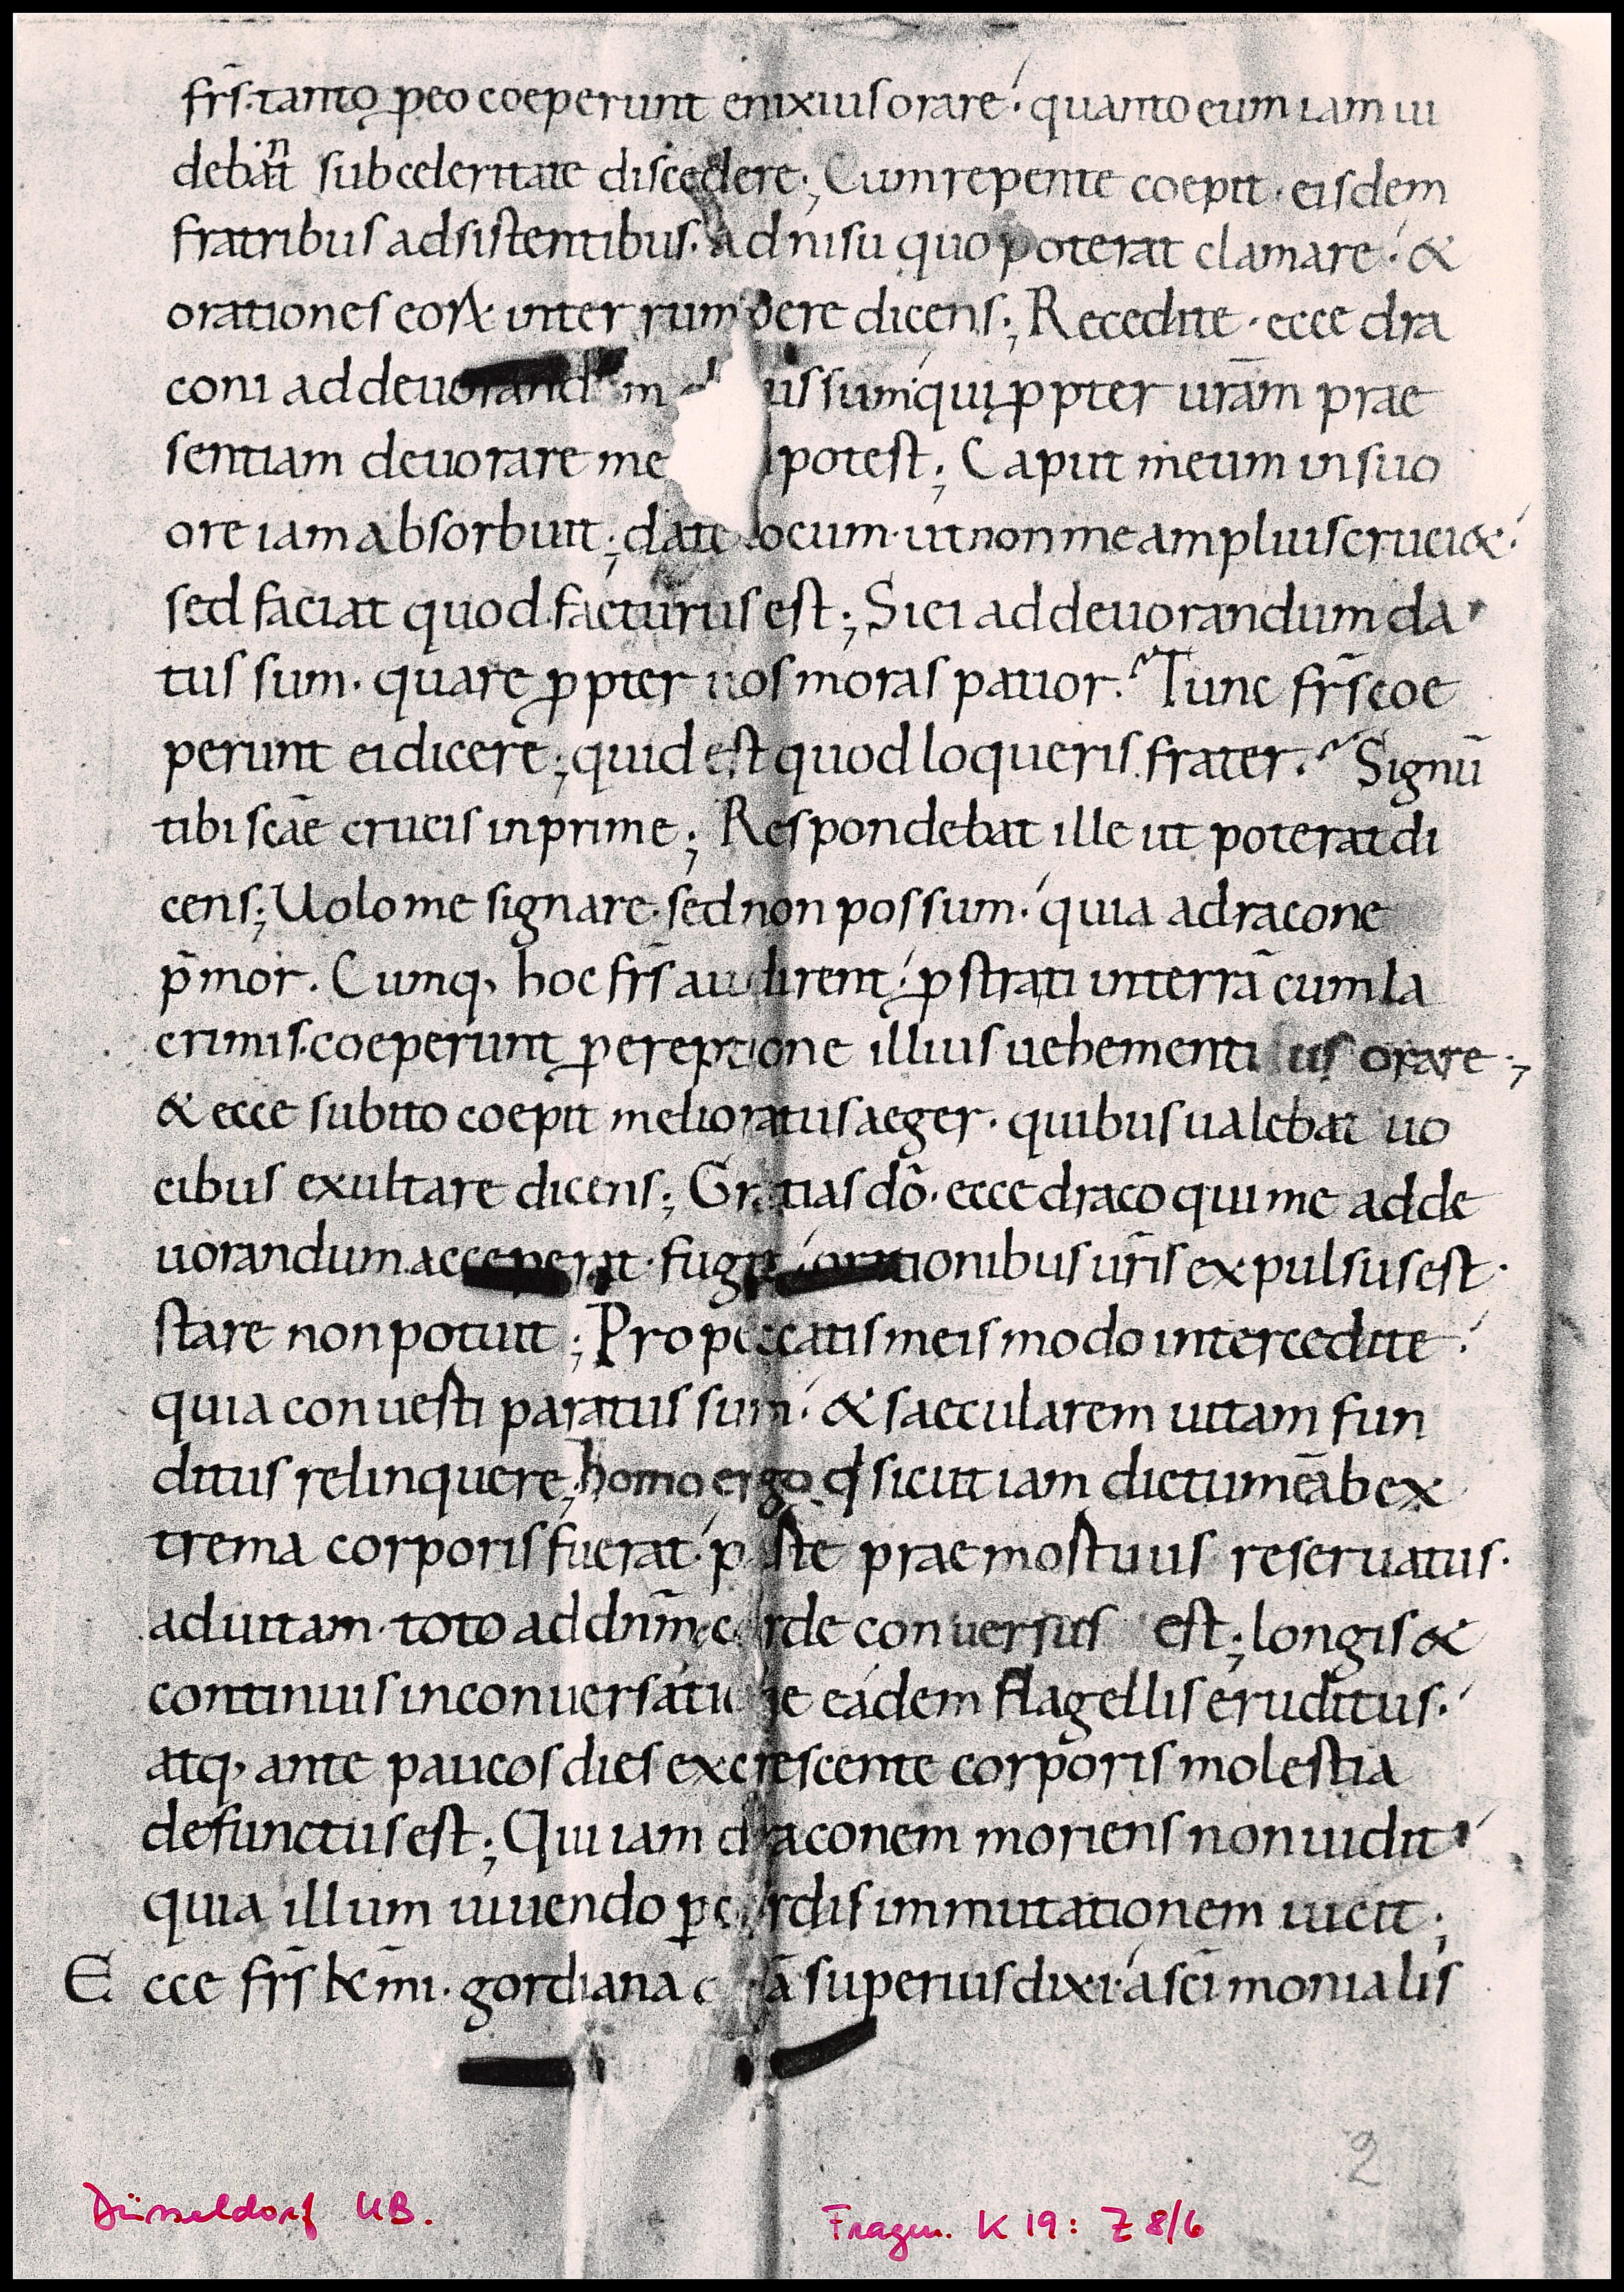 fr̄s. tanto ꝓ eo coeperunt enixius orare. quanto eum iam ui
debant sub celeritate discedere; Cum repente coepit. eisdem
fratribus adsistentibus. adnisu quo poterat clamare. &
orationes eoꝝ interrumpere dicens; Recedite. ecce dra
coni ad deuorand us sum. qui ꝓpter ur̄am prae
sentiam deuorare me potest; Caput meum in suo
ore iam absorbuit; date locum. ut non me amplius cruci&.
sed faciat quod facturus est; Si ei ad deuorandum da
tus sum. quare ꝓpter uos moras patior. Tunc fr̄s coe
perunt ei dicere; quid est quod loqueris frater. Signū
tibi sc̄ae crucis inprime; Respondebat ille ut poterat di
cens; Uolo me signare. sed non possum. quia a dracone
p̄mor. Cumq, hoc fr̄s audirent. ꝓstrati in terrā cum la
crimis. coeperunt ꝓ ereptione illius uehementius orare;
& ecce subito coepit melioratus aeger. quibus ualebat uo
cibus exultare dicens; Gratias dō. ecce draco qui me ad de
uorandum acceperat. fugit. orationibus ur̄is expulsus est.
stare non potuit; Pro peccatis meis modo intercedite.
quia conuesti paratus sum. & saecularem uitam fun
ditus relinquere; homo ergo qđ sicut iam dictum ē ab ex
trema corporis fuerat. parste praemostuus reseruatus.
ad uitam. toto ad dnm̄ corde conuersus est; longis &
continuis in conuersatione eadem flagellis eruditus.
atq, ante paucos dies excrescente corporis molestia
defunctus est; Qui iam draconem moriens non uidit
quia illum uiuendo ꝑ cordis immutationem uicit;
Ecce fr̄s km̄i. gordiana ā superius dixi. a sc̄imonialis
2
Düsseldorf UB. Fragm. K 19: Z 8/6